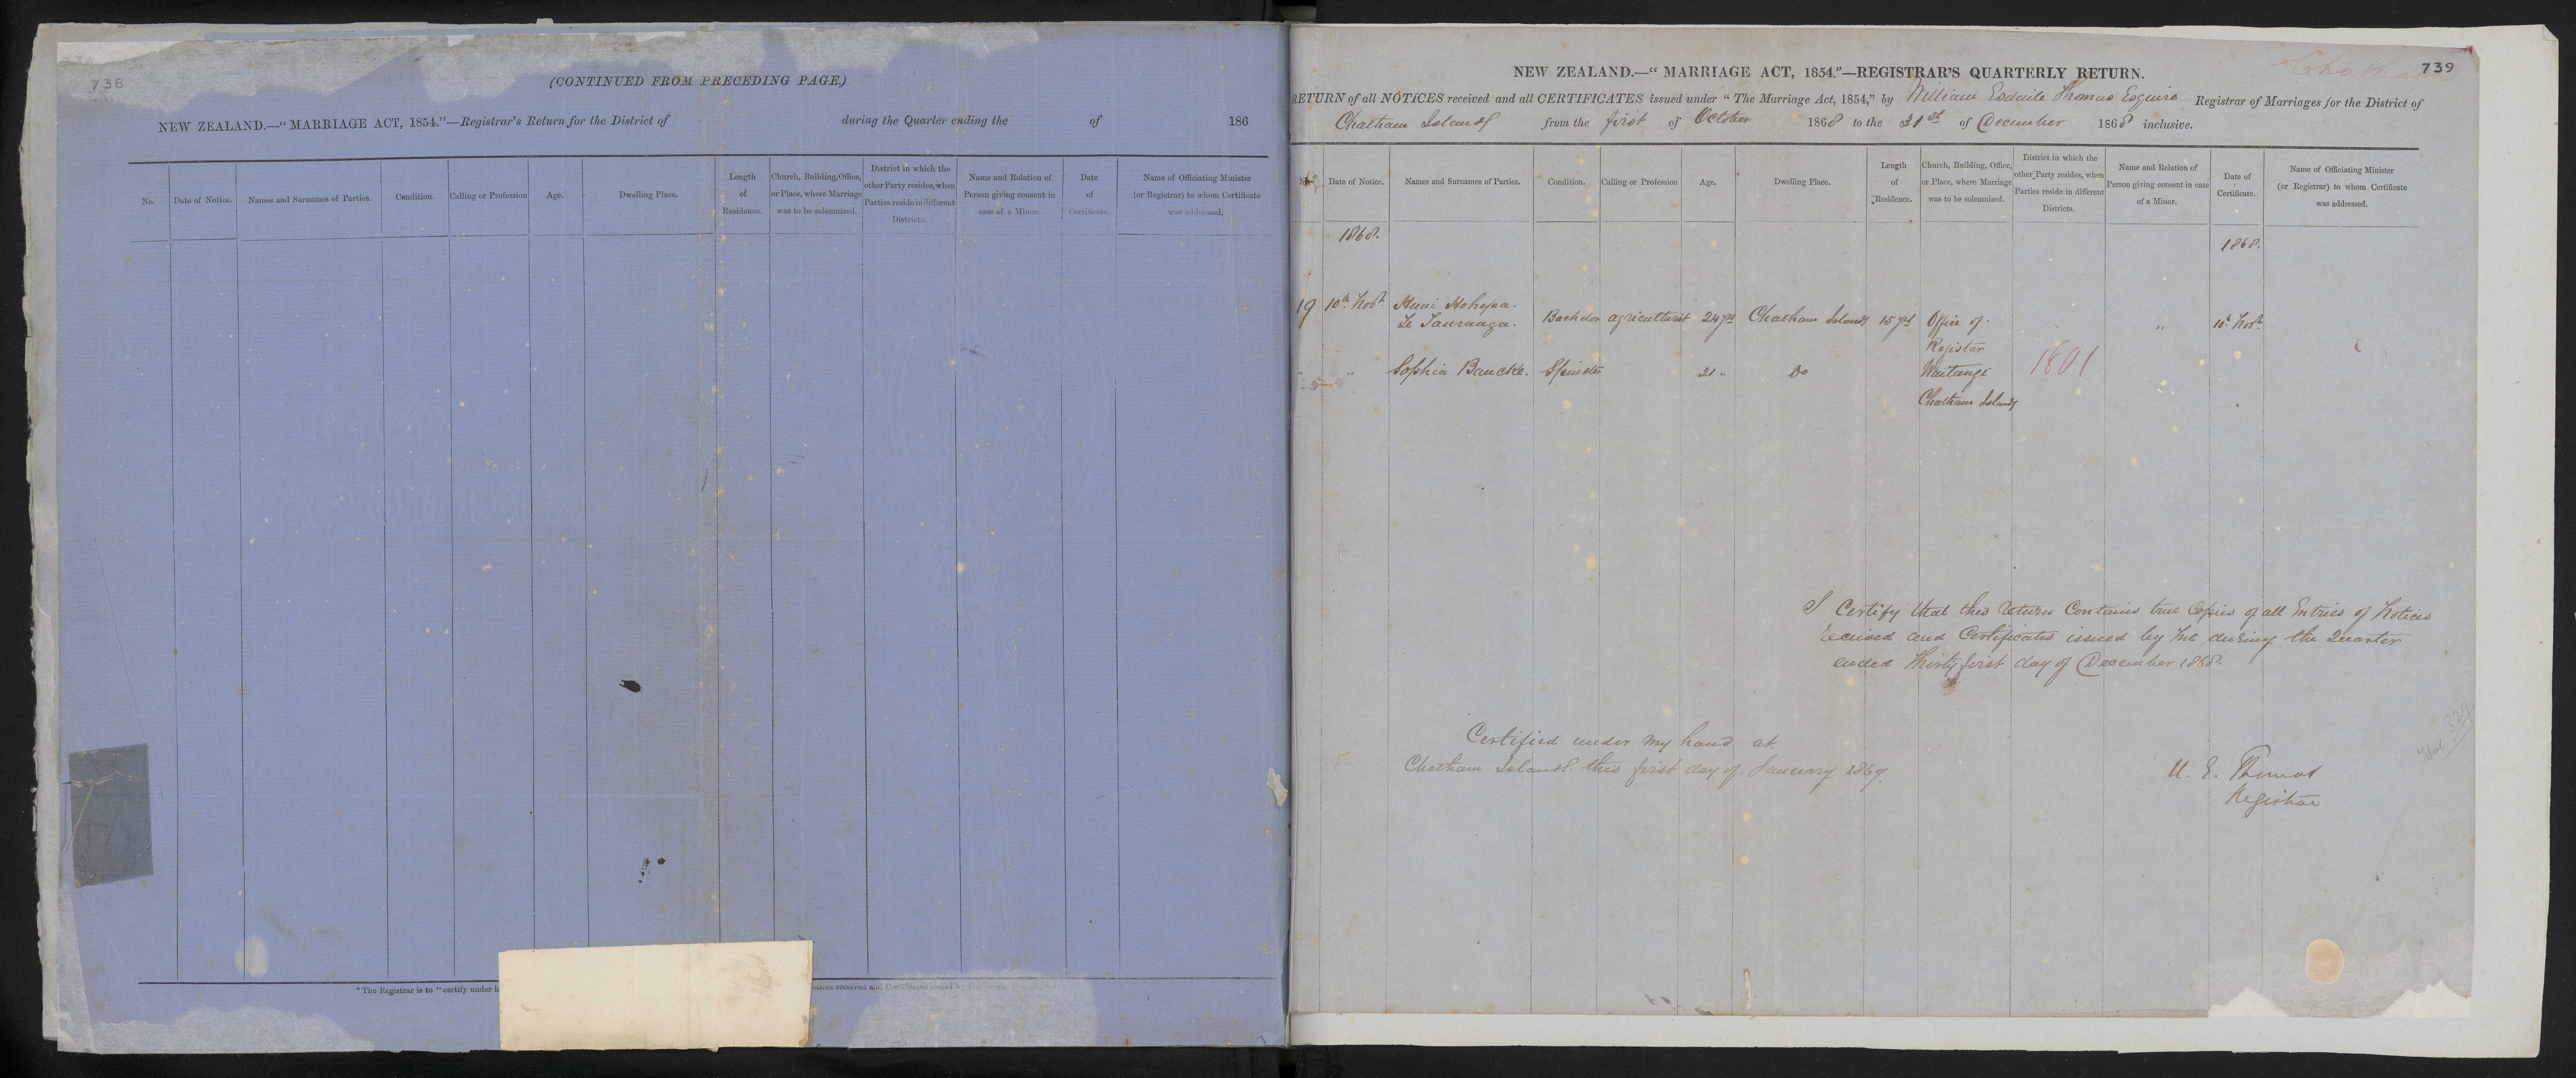 738
(CONTINUED FROM PRECEDING PAGE)
NEW ZEALAND.—“MARRIAGE ACT, 1854.”—Registrar's Return for the District of during the Quarter ending the of 186
No. Date of Notice. Names and Surnames of Parties. Condition. Calling or Profession Age. Dwelling Place. Length of Residence. Church, Building, Office, or Place, where Marriage was to be solemnized. District in which the other Party resides, when Parties reside in different Districts. Name and Relation of Person giving consent in case of a Minor. Date of Certificate. Name of Officiating Minister (or Registrar) to whom Certificate was addressed.
* The Registrar is to “certify under received and Certificates issued by
739
NEW ZEALAND.—“MARRIAGE ACT, 1854.”—REGISTRAR'S QUARTERLY RETURN.
RETURN of all NOTICES received and all CERTIFICATES issued under “The Marriage Act, 1854,” by William Esdaile Thomas Esquire Registrar of Marriages for the District of
Chatham Islands from the first of October 1868 to the 31st of December 1868 inclusive.
Date of Notice. Names and Surnames of Parties. Condition. Calling or Profession Age. Dwelling Place. Length of Residence. Church, Building, Office, or Place, where Marriage was to be solemnized. District in which the other Party resides, when Parties reside in different Districts. Name and Relation of Person giving consent in case of a Minor. Date of Certificate. Name of Officiating Minister (or Registrar) to whom Certificate was addressed.
1868. 1868.
19 10th Novr. Hohepa.
Te Tauraaga. Bachelor agriculturist 24 yrs Chatham Islands 15 yrs Office of " 10th Novr.
Registrar
" " Sophia Baucke. Spinster 21 " Do Waitangi 1801
Chatham Islands
I Certify that this return Contains true Copies of all Entries of Notices
received and Certificates issued by me during the Quarter
ended Thirty first day of December 1868.
Certified under my hand at
Chatham Islands this first day of January 1869.
W. E. Thomas
Registrar